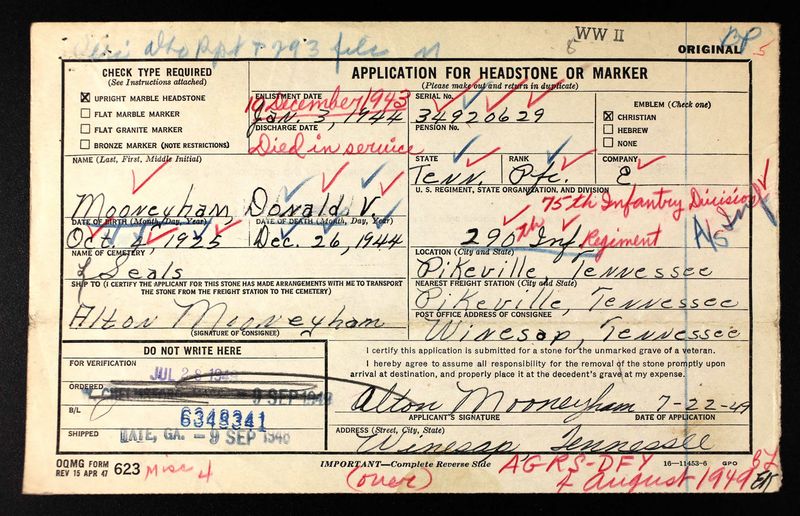 WW II
ORIGINAL
BP
5
CHECK TYPE REQUIRED
(See Instructions attached)
UPRIGHT MARBLE HEADSTONE
FLAT MARBLE MARKER
FLAT GRANITE MARKER
BRONZE MARKER (NOTE RESTRICTIONS)
APPLICATION FOR HEADSTONE OR MARKER
(Please make out and return in duplicate)
ENLISTMENT DATE
10 December 1943
Jan. 3, 1944
SERIAL No.
34920629
EMBLEM (Check one)
CHRISTIAN
HEBREW
NONE
DISCHARGE DATE
Died in service
PENSION No.
NAME (Last, First, Middle Initial)
Mooneyham, Donald V.
STATE
Tenn.
RANK
Pfc.
COMPANY
E
U. S. REGIMENT, STATE ORGANIZATION, AND DIVISION
75th Infantry Division
290 th Inf Regiment
A/S Inf
DATE OF BIRTH (Month, Day, Year)
DATE OF DEATH (Month, Day, Year)
Dec. 26, 1944
NAME OF CEMETERY
Seals
LOCATION (City and State)
Pikeville, Tennessee
SHIP TO (I CERTIFY THE APPLICANT FOR THIS STONE HAS MADE ARRANGEMENTS WITH ME TO TRANSPORT
THE STONE FROM THE FREIGHT STATION TO THE CEMETERY)
NEAREST FREIGHT STATION (City and State)
Pikeville, Tennessee
Alton Mooneyham
(SIGNATURE OF CONSIGNEE)
POST OFFICE ADDRESS OF CONSIGNEE
Winesap, Tennessee
DO NOT WRITE HERE
FOR VERIFICATION
ORDERED
B/L
6349341
SHIPPED
TATE, GA. - 9 SEP
I certify this application is submitted for a stone for the unmarked grave of a veteran.
I hereby agree to assume all responsibility for the removal of the stone promptly upon
arrival at destination, and properly place it at the decedent's grave at my expense.
Alton Mooneyham 7-22-49
APPLICANT'S SIGNATURE
DATE OF APPLICATION
ADDRESS (Street, City, State)
Winesap Tennessee
OQMG FORM
REV 15 APR 47
623
Misc 4
IMPORTANT—Complete Reverse Side
(over)
16—11453-6 GPO
AGRS-DFY
August 1949